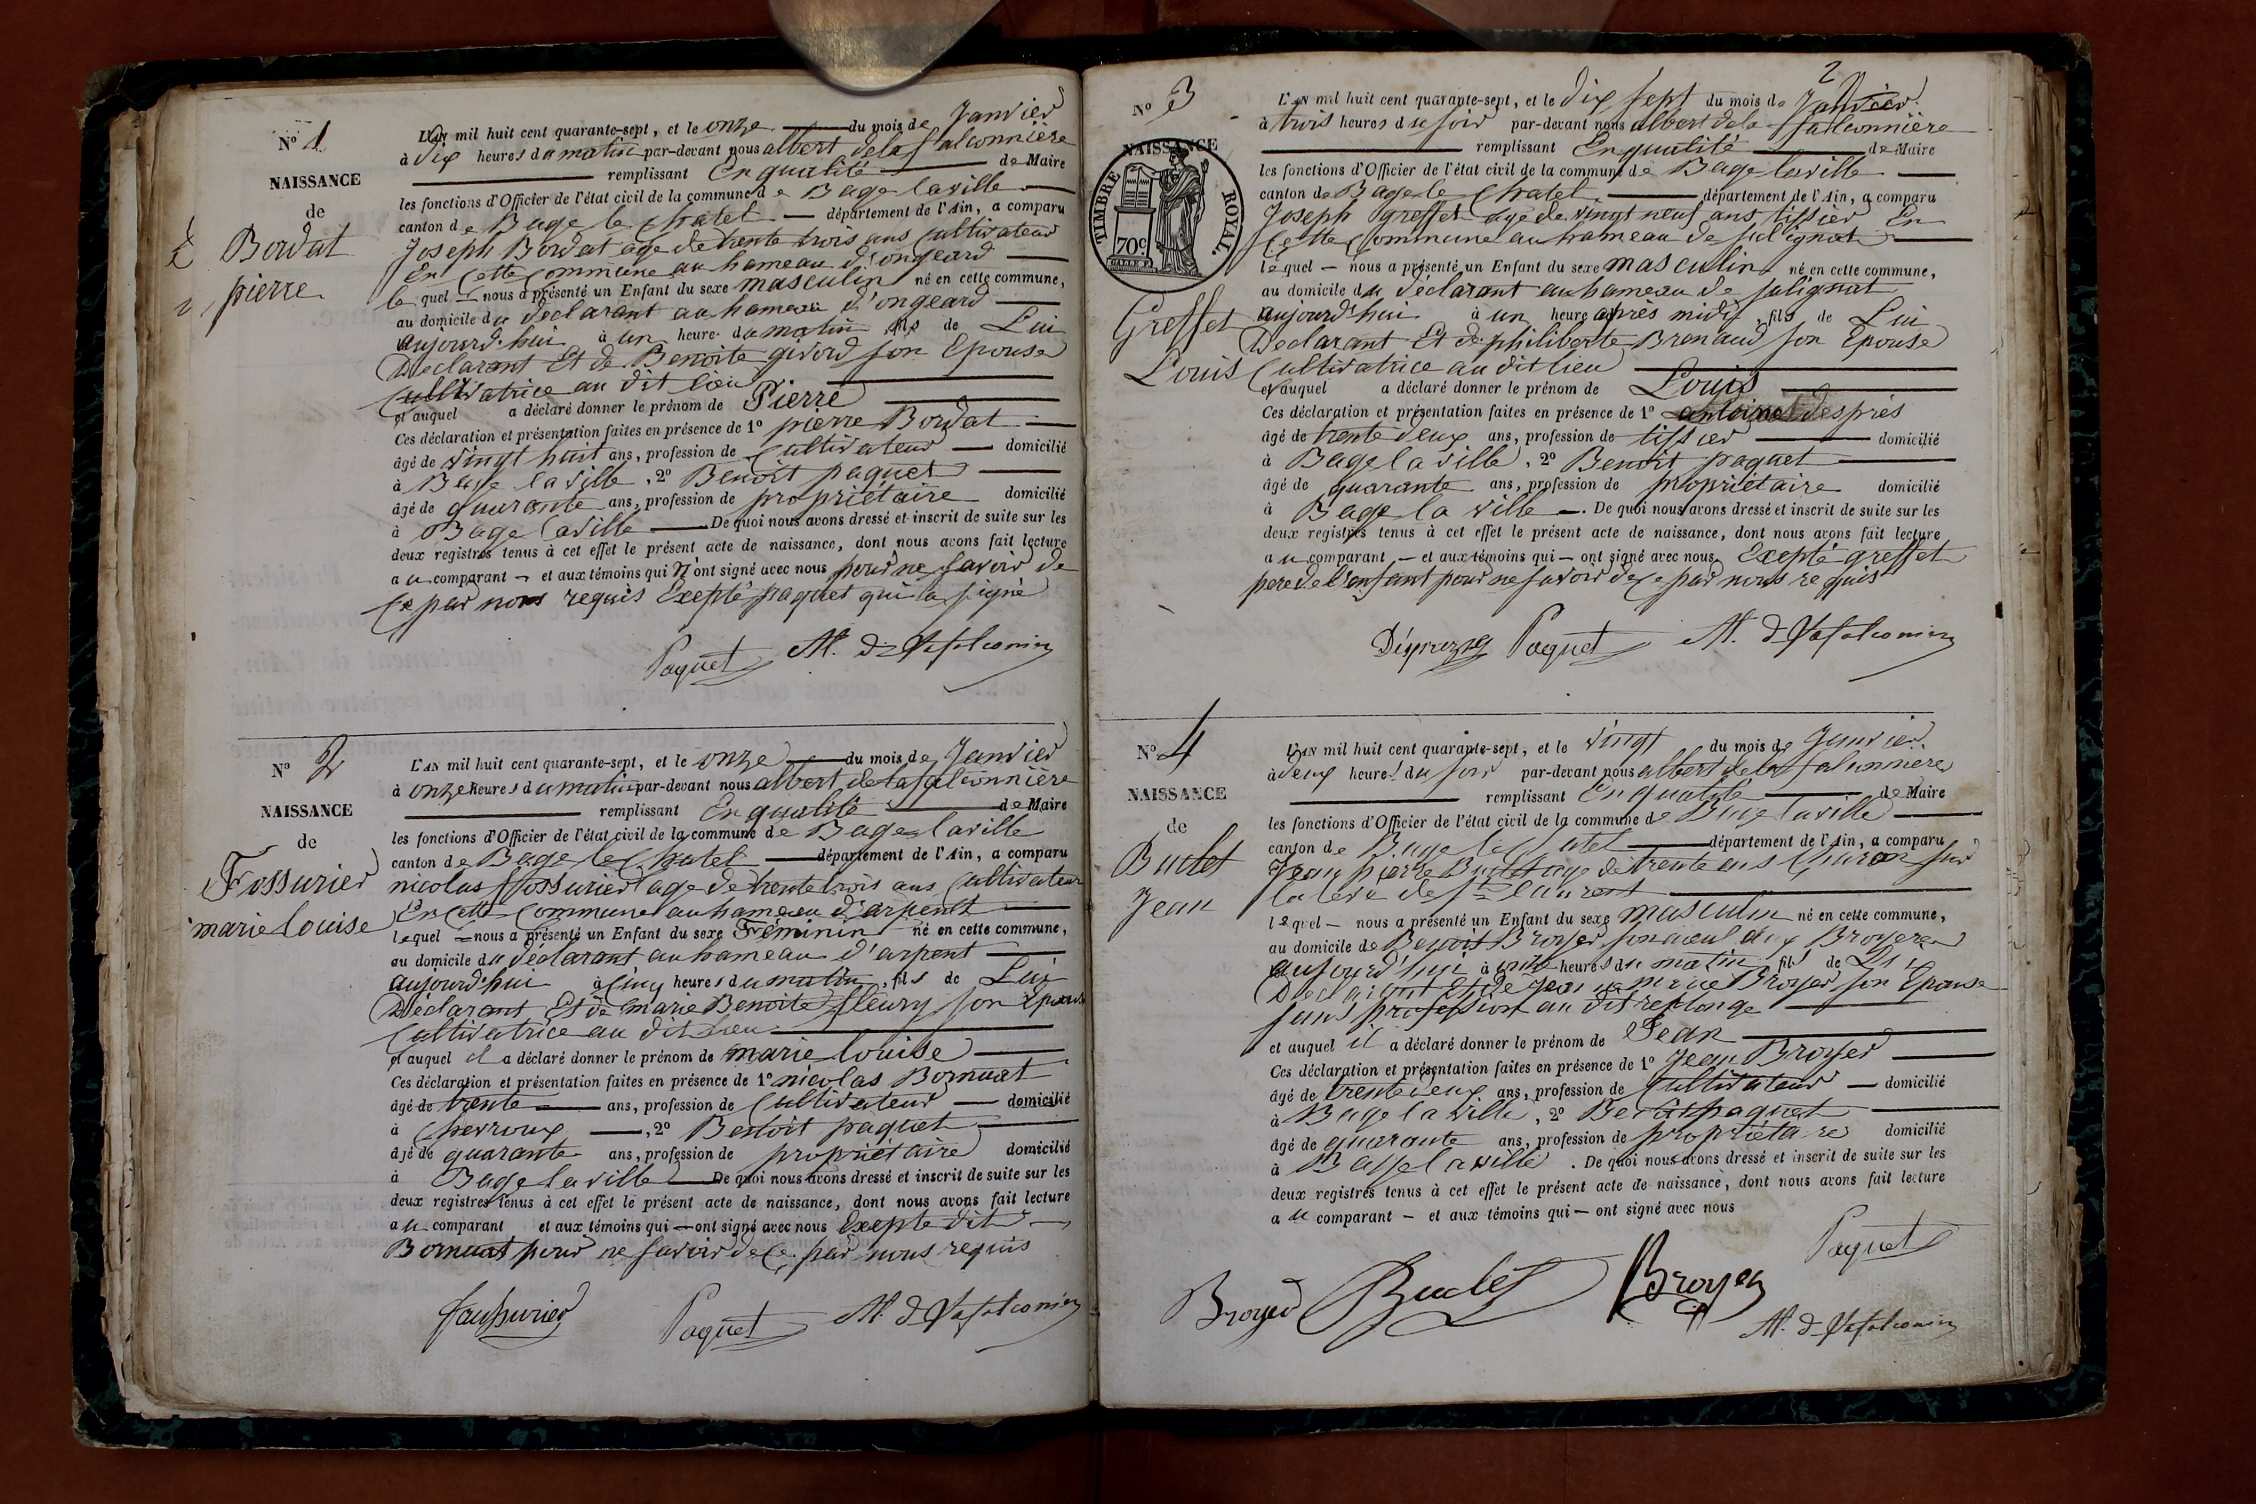 N° 1
NAISSANCE
de
Bordat
pierre
L'AN mil huit cent quarante-sept, et le onze du mois de Janvier
à dix heures du matin par-devant nous albert dela falconnière
remplissant En qualité de Maire
les fonctions d'Officier de l'état civil de la commune de Bage laville
canton de Bage le Chatel département de l'Ain, a comparu
Joseph Bordat age de trente trois ans Cultivateur
En Cette Commune au hameau d'ongeard
lequel nous a présenté un Enfant du sexe masculin né en cette commune,
au domicile du declarant au hameau d'ongeard
aujourd'hui à un heure du matin fils de Lui
Declarant Et de Benoite givord son Epouse
Cultivatrice au dit lieu
et auquel a déclaré donner le prénom de Pierre
Ces déclaration et présentation faites en présence de 1° pierre Bordat
âgé de vingt huit ans, profession de Cultivateur domicilié
à Bage la ville, 2° Benoit paquet
âgé de quarante ans, profession de propriétaire domicilié
à Bage laville De quoi nous avons dressé et inscrit de suite sur les
deux registres tenus à cet effet le présent acte de naissance, dont nous avons fait lecture
au comparant et aux témoins qui n'ont signé avec nous pour ne savoir de
Ce par nous requis Exepté paquet qui a signé
Paquet
N° 2
NAISSANCE
de
Fossurier
marie louise
L'AN mil huit cent quarante-sept, et le onze du mois de Janvier
à onze heures du matin par-devant nous albert de la falconnière
remplissant En qualité de Maire
les fonctions d'Officier de l'état civil de la commune de Bage laville
canton de Bage le Chatel département de l'Ain, a comparu
nicolas fossurier age de trente trois ans Cultivateur
En Cette Commune au hameau d'arpent
lequel nous a présenté un Enfant du sexe Féminin né en cette commune,
au domicile du déclarant au hameau d'arpent
aujourd'hui à Cinq heures du matin, fils de Lui
Déclarant Et de marie Benoite fleury son Epouse
Cultivatrice au dit Lieu
et auquel il a déclaré donner le prénom de marie louise
Ces déclaration et présentation faites en présence de 1° nicolas Bornuat
âgé de trente ans, profession de Cultivateur domicilié
à Cherroux, 2° Benoit paquet
âgé de quarante ans, profession de propriétaire domicilié
à Bage laville De quoi nous avons dressé et inscrit de suite sur les
deux registres tenus à cet effet le présent acte de naissance, dont nous avons fait lecture
au comparant et aux témoins qui ont signé avec nous Exepté dit
Bornuat pour ne savoir de Ce par nous requis
Paquet
2
N° 3
NAISSANCE
TIMBRE ROYAL.
70c.
Greffet
Louis
L'AN mil huit cent quarante-sept, et le dix sept du mois de Janvier
à trois heures du soir par-devant nous albert dela falconnière
remplissant En qualité de Maire
les fonctions d'Officier de l'état civil de la commune de Bage laville
canton de Bage le Chatel département de l'Ain, a comparu
Joseph greffet age de vingt neuf ans tissier En
Cette Commune au hameau de salignat
lequel nous a présenté un Enfant du sexe masculin né en cette commune,
au domicile du déclarant au hameau de salignat
aujourd'hui à un heure après midy, fils de Lui
Declarant Et de philiberte Brenaud son Epouse
Cultivatrice au dit lieu
et auquel a déclaré donner le prénom de Louis
Ces déclaration et présentation faites en présence de 1° antoine desprès
âgé de trente deux ans, profession de tissier domicilié
à Bage la ville, 2° Benoit paquet
âgé de quarante ans, profession de propriétaire domicilié
à Bage la ville. De quoi nous avons dressé et inscrit de suite sur les
deux registres tenus à cet effet le présent acte de naissance, dont nous avons fait lecture
au comparant et aux témoins qui ont signé avec nous Exepté greffet
pere de l'enfant pour ne savoir de Ce par nous requis
Paquet
N° 4
NAISSANCE
de
Buclet
Jean
L'AN mil huit cent quarante-sept, et le vingt du mois de Janvier
à deux heures du soir par-devant nous albert de la falconnière
remplissant En qualité de Maire
les fonctions d'Officier de l'état civil de la commune de Bage laville
canton de Bage le Chatel département de l'Ain, a comparu
Jean pierre Buclet age de trente ans Charon sur
la levé de St laurent
lequel nous a présenté un Enfant du sexe masculin né en cette commune,
au domicile de Benoit Broyer son aieul aux Broyers
aujourd'hui à onze heures du matin, fils de Lui
Declarant Et de Jeanne marie Broyer son Epouse
sans profession au dit replonge
et auquel il a déclaré donner le prénom de Jean
Ces déclaration et présentation faites en présence de 1° Jean Broyer
âgé de trente deux ans, profession de Cultivateur domicilié
à Bage la ville, 2° Benoit paquet
âgé de quarante ans, profession de propriétaire domicilié
à Bage la ville. De quoi nous avons dressé et inscrit de suite sur les
deux registres tenus à cet effet le présent acte de naissance, dont nous avons fait lecture
au comparant et aux témoins qui ont signé avec nous
Paquet
Broyer Buclet Broyer